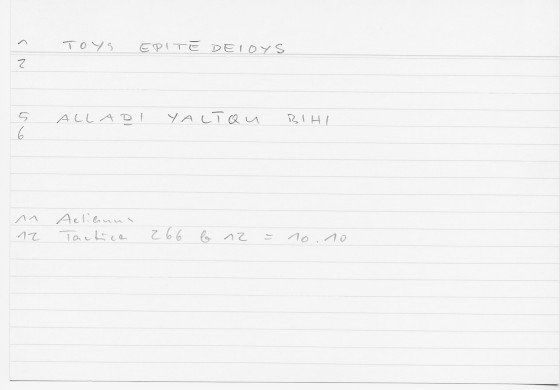 1 TOYS EPITĒDEIOYS
2
5 ALLAḎI YALĪQU BIHI
6
11 Aelianus
12 Tactica 266 b 12 = 10.10